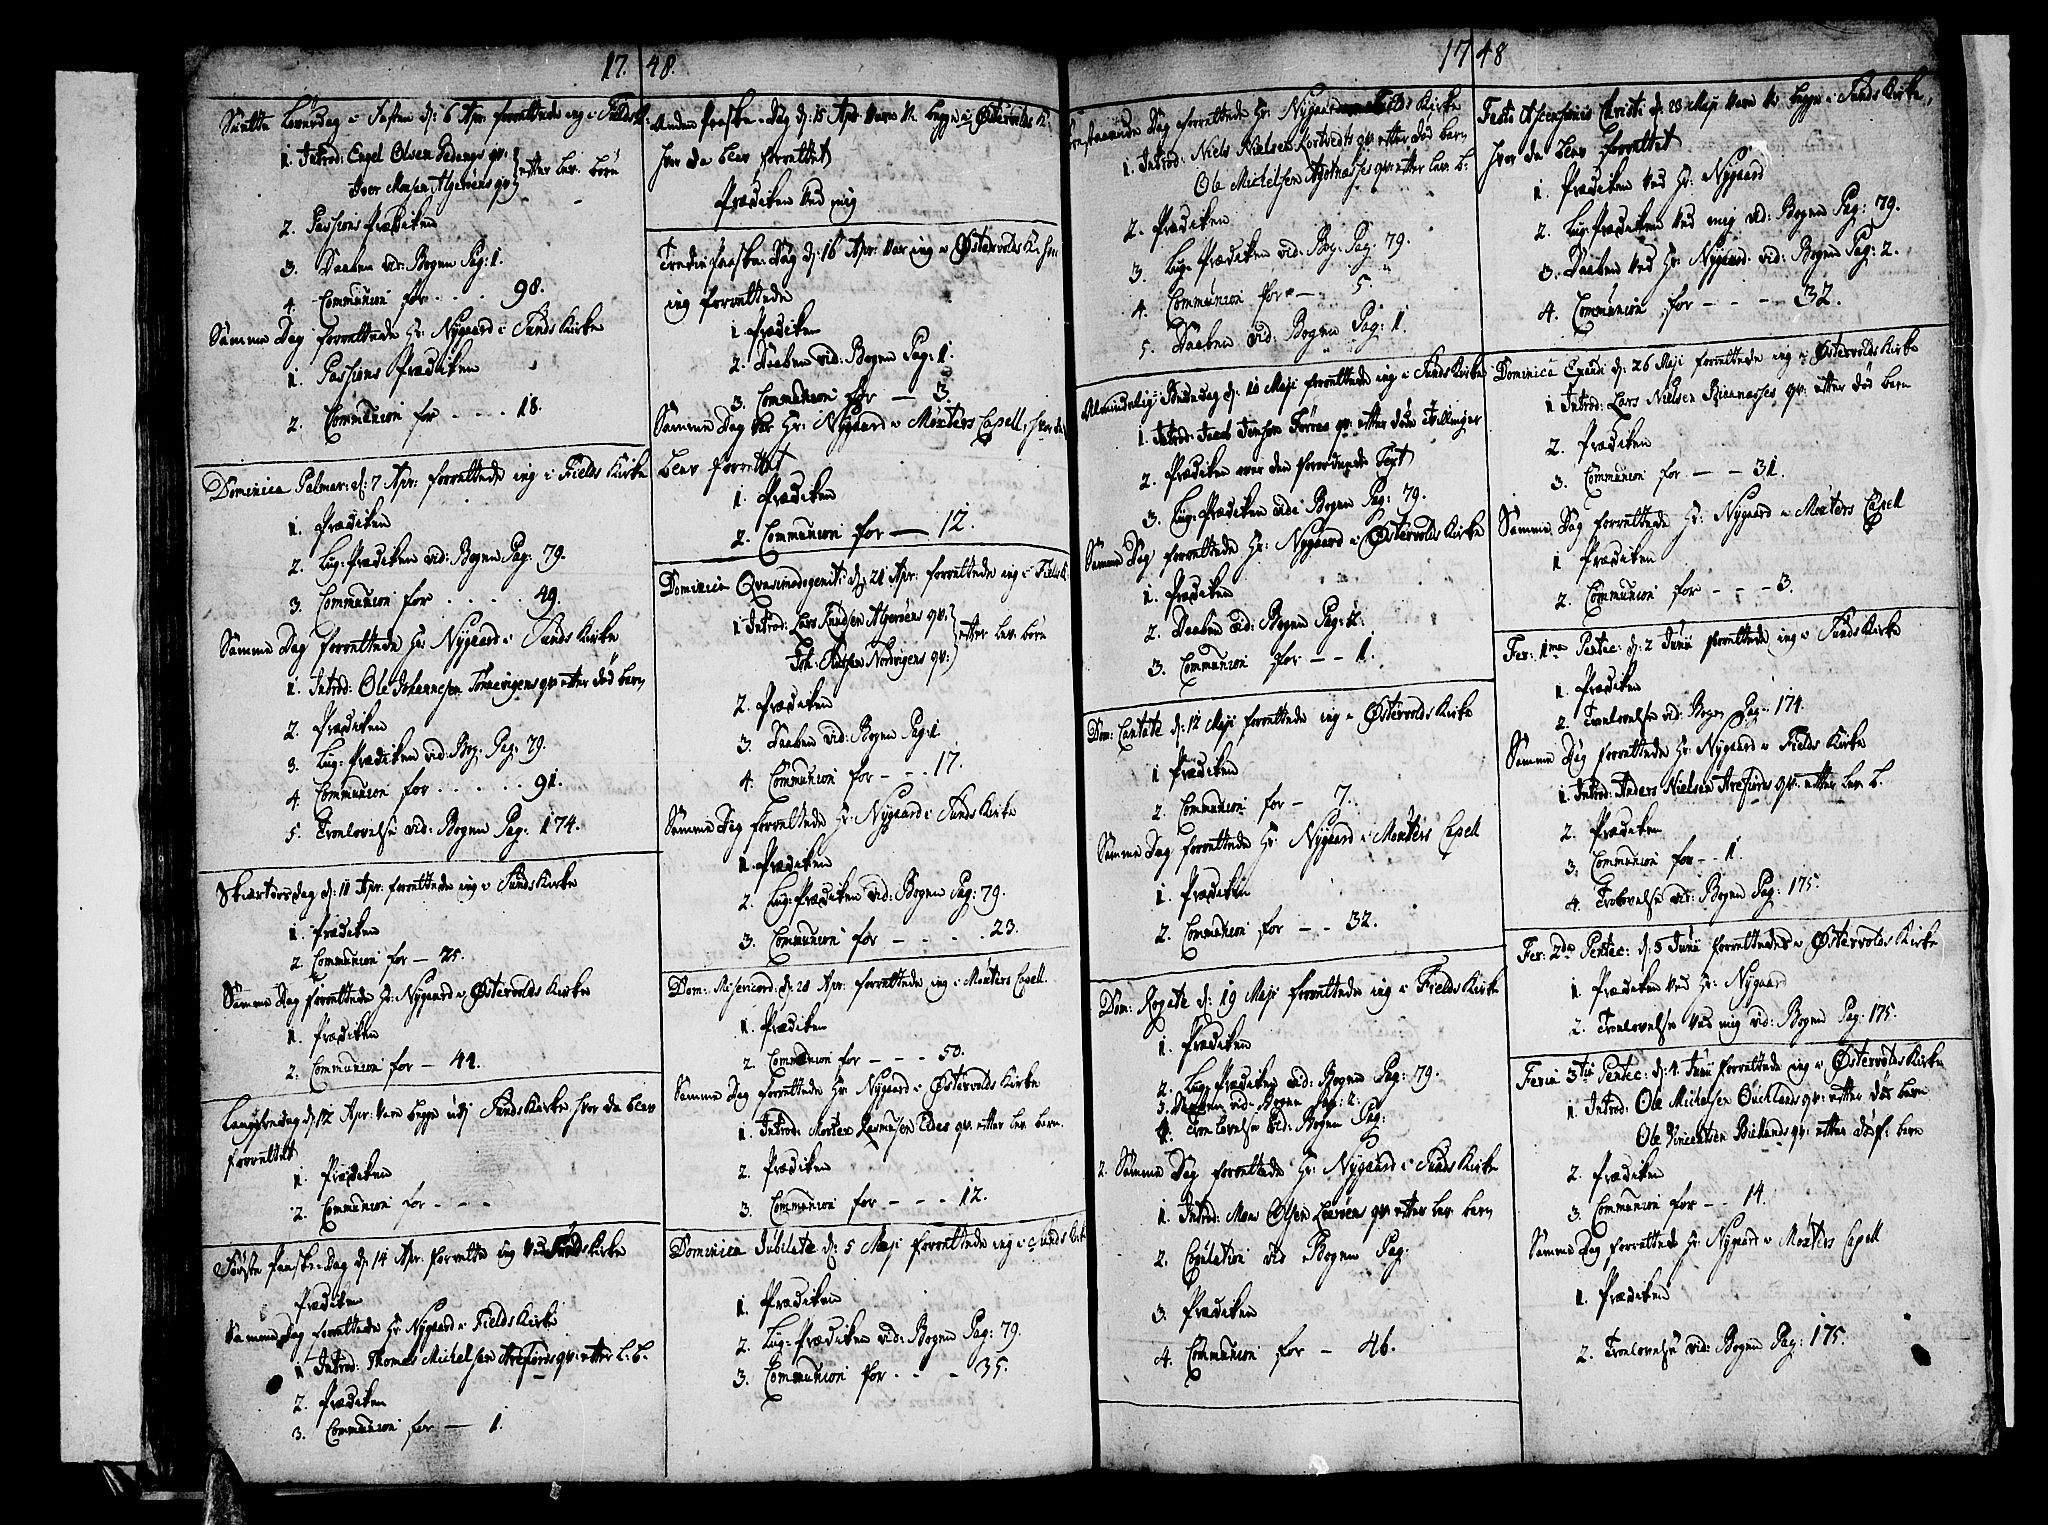 17. 48.
Siette Løverdag i Fasten d: 6 Apr. forrettede ieg i Fields K:
1. Introd: Engel Olsen qv:
Iver Monsen Algerøens qv: efter lev. børn
2. Passions Prædiken
3. Daaben vid: Bogen Pag: 1.
4. Communion for . . . . 98.
Samme Dag forrettede Hr: Nygaard i Sunds Kirke
1. Passions Prædiken
2. Communion for . . . . 18.
Dominica Palmar: d: 7 Apr: forrettede ieg i Fields Kirke
1. Prædiken
2. Lig-Prædiken vid: Bogen Pag: 79.
3. Communion for . . . . . 49.
Samme Dag forrettede Hr: Nygaard i Sunds Kirke
1. Introd: Ole Johannesen qv: efter død barn
2. Prædiken
3. Lig-Prædiken vid: Bog: Pag: 79.
4. Communion for . . . . . . 91.
5. Troelovelse vid: Bogen Pag: 174.
Skiærtorsdag d: 11 Apr: forrettede ieg i Sunds Kirke
1. Prædiken
2. Communion for — 25.
Samme Dag forrettede Hr: Nygaard i Østervolds Kirke
1. Prædiken
2. Communion for — 44.
Langfredag d: 12 Apr: vare begge udj Sunds Kirke hvor da blev
forrettet
1. Prædiken
2. Communion for - - -
Første Paaske-Dag d: 14 Apr: forrettede ieg ved Sunds Kirke
Prædiken
Samme Dag forrettede Hr Nygaard i Fields Kirke
1. Introd: Thomas Michelsen Arefiords qv: efter l: b.
2. Prædiken
3. Communion for — 1.
Anden Paaske-Dag d: 15 Apr: vare vi begge i Østervolds K:
hvor da blev forrettet
Prædiken ved mig
Tredie Paaske-Dag d: 16 Apr: var ieg i Østervolds K: hvor
ieg forrettede
1. Prædiken
2. Daaben vid: Bogen Pag: 1.
3. Communion for — 3.
Samme Dag var Hr: Nygaard i Møxters Capell, hvor da
blev forrettet
1. Prædiken
2. Communion for — 12.
Dominica Qvasimodogenit: d: 21 Apr: forrettede ieg i Fields K.
1. Introd: Lars Knudsen Algerøens qv:
Joh: Nordvigens qv: efter lev. børn
2. Prædiken
3. Daaben vid: Bogen Pag: 1.
4. Communion for - - - 17.
Samme Dag forrettede Hr: Nygaard i Sunds Kirke
1. Prædiken
2. Lig-Prædiken vid: Bogen Pag: 79.
3. Communion for - - - - 23.
Dom: Misericord: d: 28 Apr: forrettede ieg i Møxters Capell.
1. Prædiken
2. Communion for - - - 50.
Samme Dag forrettede Hr: Nygaard i Østervolds Kirke
1. Introd: Morten Rasmusen qv: efter lev. barn.
2. Prædiken
3. Communion for - - - 12.
Dominica Jubilate d: 5 Maji forrettede ieg i Sunds Kirke
1. Prædiken
2. Lig-Prædiken vid: Bogen Pag: 79.
3. Communion for - - - 35.
17 48
Dag forrettede Hr: Nygaard Fields Kirke
1. Introd: Niels Nielsen qv: efter død barn
Ole Michelsen qv: efter lev. b.
2. Prædiken
3. Lig-Prædiken vid: Bog: Pag: 79.
4. Communion for — 5.
5. Daaben vid: Bogen Pag: 1.
Almindelig Bededag d: 10 Maji forrettede ieg i Sunds Kirke
1. Introd: Jacob Jensen qv: efter døde Tvillinger
2. Prædiken over den forordnede Text
3. Lig-Prædiken vid: Bogen Pag: 79.
Samme Dag forrettede Hr: Nygaard i Østervolds Kirke
1. Prædiken
2. Daaben vid: Bogen Pag: 2.
3. Communion for - - 1.
Dom: Cantate d: 12 Maji forrettede ieg i Østervolds Kirke
1. Prædiken
2. Communion for - 7.
Samme Dag forrettede Hr: Nygaard i Møxters Capell
1. Prædiken
2. Communion for - - 32.
Dom: Rogate d: 19 Maji forrettede ieg i Fields Kirke
1. Prædiken
2. Lig-Prædiken vid: Bogen Pag: 79.
3. Daaben vid: Bogen Pag: 2.
4. Troelovelse vid: Bogen Pag:
2. Samme Dag forrettede Hr: Nygaard i Sunds Kirke
1. Introd: Mons Olsen Lerøens qv: efter lev. barn
2. Copulation vid Bogen Pag:
3. Prædiken
4. Communion for - 46.
Festo Ascensionis Christi d: 23 Maji vare vi begge i Sunds Kirke,
hvor da blev forrettet
1. Prædiken ved Hr: Nygaard
2. Lig-Prædiken ved mig vid: Bogen Pag: 79.
3. Daaben ved Hr: Nygaard vid: Bogen Pag: 2.
4. Communion for - - - 32.
Dominica Exaudi d: 26 Maji forrettede ieg i Østervolds Kirke
1. Introd: Lars Nielsen qv: efter død barn
2. Prædiken
3. Communion for - - 31.
Samme Dag forrettede Hr: Nygaard i Møxters Capell
1. Prædiken
2. Communion for - - - 3.
Fer: 1ma Pentec: d: 2 Junii forrettede ieg i Sunds Kirke
1. Prædiken
2. Troelovelse vid: Bogen Pag: 174.
Samme Dag forrettede Hr: Nygaard i Fields Kirke
1. Introd: Anders Nielsen Arefiords qv: efter lev. b.
2. Prædiken
3. Communion for - - 1.
4. Trolovelse vid: Bogen Pag: 175.
Fer: 2da Pentec: d: 3 Junii forrettedes i Østervolds Kirke
1. Prædiken ved Hr: Nygaard
2. Troelovelse ved mig vid: Bogen Pag: 175.
Feria 3tia Pentec: d: 4 Junii forrettede ieg i Østervolds Kirke
1. Introd: Ole Michelsen qv: efter død barn
Ole Vincentsen qv: efter dødf: barn
2. Prædiken
3. Communion for - - 14.
Samme Dag forrettede Hr: Nygaard i Møxters Capell
1. Prædiken
2. Troelovelse vid: Bogen Pag: 175.